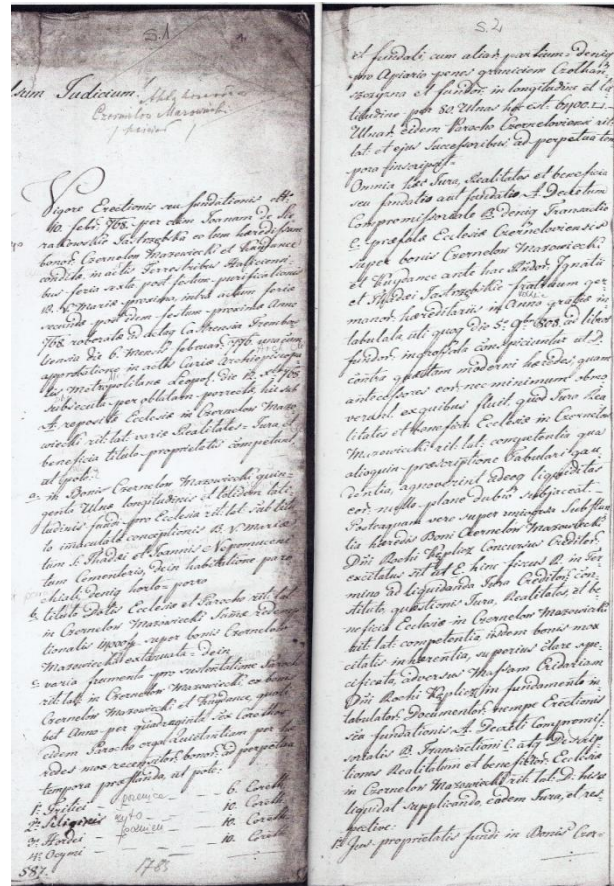 S. 1.
1.
sum Judicium.
Czernilow Mazowiecki
Vigore Erectionis seu fundationis
10. febr. 768. per olim Joannem de
bonor. Czernelow Mazowiecki et Kuydance
condita, in actis Terrestribus Haliciensi
bus feria sexta post festum purificationis
B. V. Mariae proxima, intra actum feriae
secundae post idem festum proximae Anno
768. roborata ad acta Castrensia Trembov
liensia die 6. Mensis februar. 776. una cum
approbatione in actis Curiae Archiepiscopa
lis Metropolitana Leopol. die 12. 768
subsecuta per oblatam porrecta, hic sub
A. reposita Ecclesiae in Czernelow Mazo
wiecki rit. lat. varia Realitates Jura et
beneficia titulo proprietatis competunt,
ut puta:
a. in Bonis Czernelow Mazowiecki quin
genta Ulna longitudinis et totidem lati
tudinis fundi pro Ecclesia rit. lat. sub titu
lo immaculata conceptionis B. V. Mariae
tum S. Thadaei et Joannis Nepomuceni
tam Caementerio, dein habitatione paro
chiali, deniq horto porro
b. tituli Dotis Ecclesiae et Parocho rit. lat.
in Czernelow Mazowiecki Summa redemp
tionalis super bonis Czernelow
Mazowiecki extenuata dein
c. varia frumenta pro sustentatione Paroch
rit. lat. in Czernelow Mazowiecki ex bonis
Czernelow Mazowiecki et Kuydance, quot
bet Anno per quadraginta sex Corethos
eidem Parocho erga Quietantiam per hae
redes mox receptos bonor. ad perpetua
tempora praestanda, ut puta:
1. Tritici pszenica 6. Coreth.
2. Siliginis żyto 10. Coreth.
3. Hordei jęczmień 10. Coreth.
4. 10. Coreth.
587.
1783
S. 2
rit. fundati cum aliis partium deniq
pro Apiario penes graniciem Czolhan
in longitudine et la
titudine per 80. Ulnas hoc est. 6400.
Ulnar. eidem Parocho Czerneloviensi rit.
lat. et ejus successoribus ad perpetua tem
pora
Omnia haec Jura, Realitates et beneficia
seu fundatio aut fundatio A. Decretum
Compromissoriale B. deniq Transactio
C. praefata Ecclesiae Czerneloviensis
super bonis Czernelow Mazowiecki
et Kuydance ante hac Ignatii
et Thadaei fratrum ger
manor. haereditariis in Anno in
tabulata, uti quoq die 5. 9bris 803. ad libros
fundor. ingrossata conspiciuntur ut D.
contra quaestum moderni haeredes, quam
antecessores eor. nec minimum obmo
verunt, ex quibus fluit quod Jura Rea
litates et beneficia Ecclesiae in Czernelow
Mazowiecki rit. lat. competentia qua
alioquin praescriptione Tabulari gau
dentia, agnoverint ideoq liquiditas
eor. nullo plane dubio subjaceat.
Postquam vero super universa Substan
tia haeredis Boni Czernelow Mazowiecki
Dni Rochi Keplicz Concursus Creditor.
excitatus sit ut E. hinc fiscus R. in Ter
mino ad liquidanda Jura Creditor. con
stituto, quaestionis Jura, Realitates, et be
neficia Ecclesiae in Czernelow Mazowiecki
rit. lat. competentia, iisdem bonis mox
citatis inhaerentia, superius clare spe
cificata, adversus Massam Cridariam
Dni Rochi Keplicz in fundamento in
tabulator. Documentor. nempe Erectionis
seu fundationis A. Decreti Compromis
sorialis B. Transactionis C. atq
tionis Realitatum et beneficior. Ecclesiae
in Czernelow Mazowiecki rit. lat. D. hisce
liquidat supplicando, eadem Jura, et res
pective:
1. Jus proprietatis fundi in Bonis Czer-